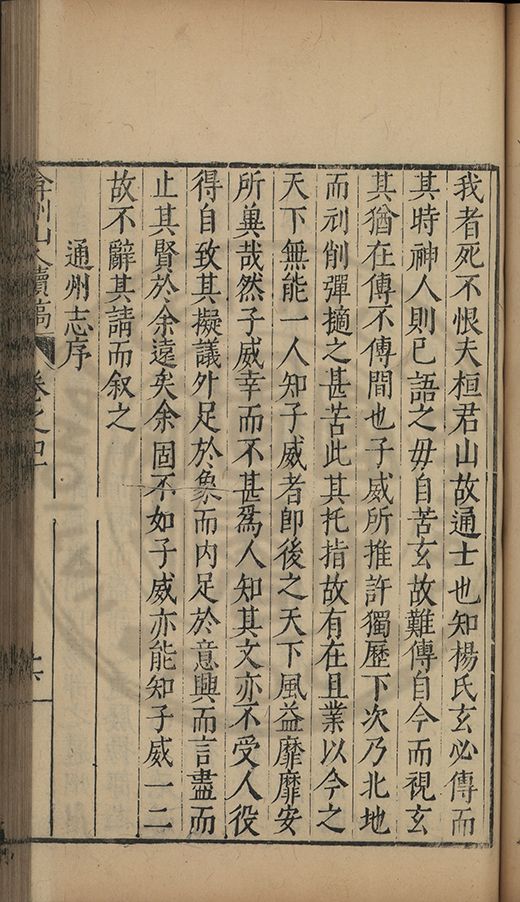 我者死不恨夫桓君山故通士也知楊氏玄必傳而
其時神人則已語之毋自苦玄故難傳自今而視玄
其猶在傳不傳間也子威所推許獨歷下次乃北地
而刓削彈擿之甚苦此其托指故有在且業以今之
天下無能一人知子威者卽後之天下風益靡靡安
所冀哉然子威幸而不甚爲人知其文亦不受人役
得自致其擬議外足於象而内足於意興而言盡而
止其賢於余遠矣余固不如子威亦能知子威一二
故不辭其請而叙之
通州志序
弇州山人續稿 卷之四